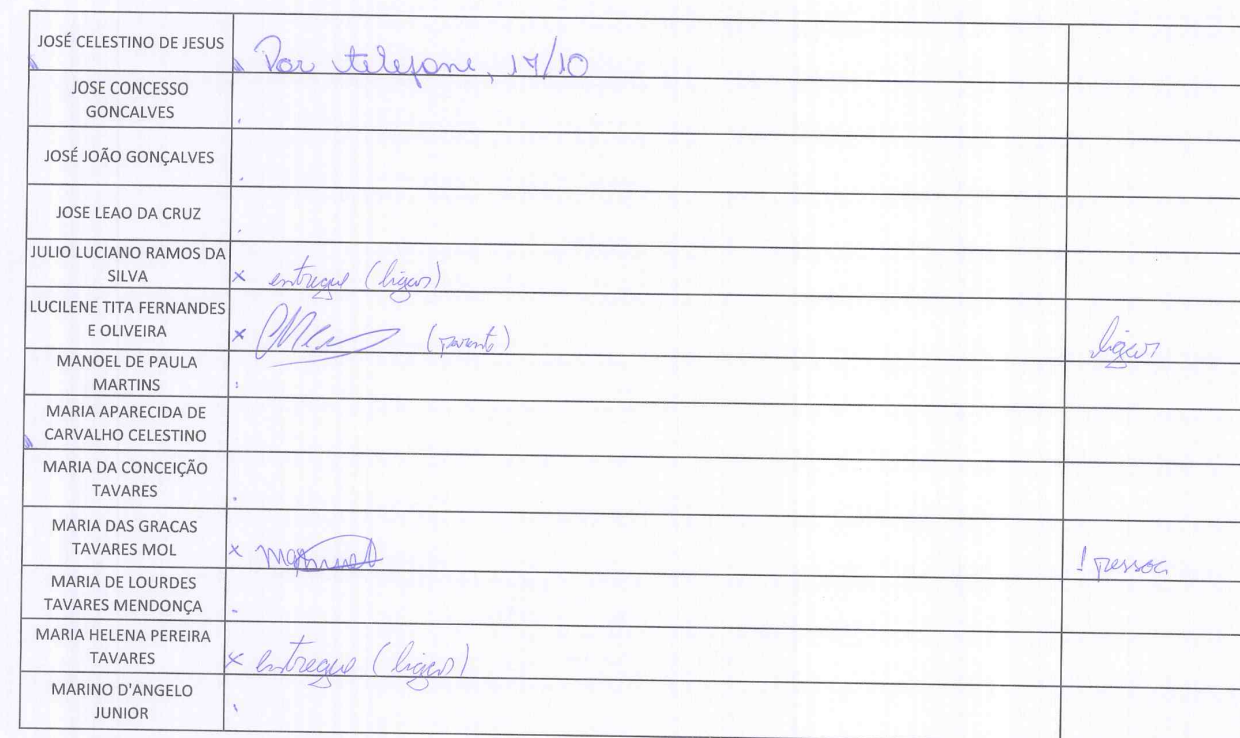 JOSÉ CELESTINO DE JESUS
Por telefone, 17/10
JOSE CONCESSO
GONCALVES
JOSÉ JOÃO GONÇALVES
JOSE LEAO DA CRUZ
JULIO LUCIANO RAMOS DA
SILVA
x entregue (ligar)
LUCILENE TITA FERNANDES
E OLIVEIRA
x (parente)
ligar
MANOEL DE PAULA
MARTINS
MARIA APARECIDA DE
CARVALHO CELESTINO
MARIA DA CONCEIÇÃO
TAVARES
MARIA DAS GRACAS
TAVARES MOL
x
1 pessoa
MARIA DE LOURDES
TAVARES MENDONÇA
MARIA HELENA PEREIRA
TAVARES
x entregue (ligar)
MARINO D'ANGELO
JUNIOR